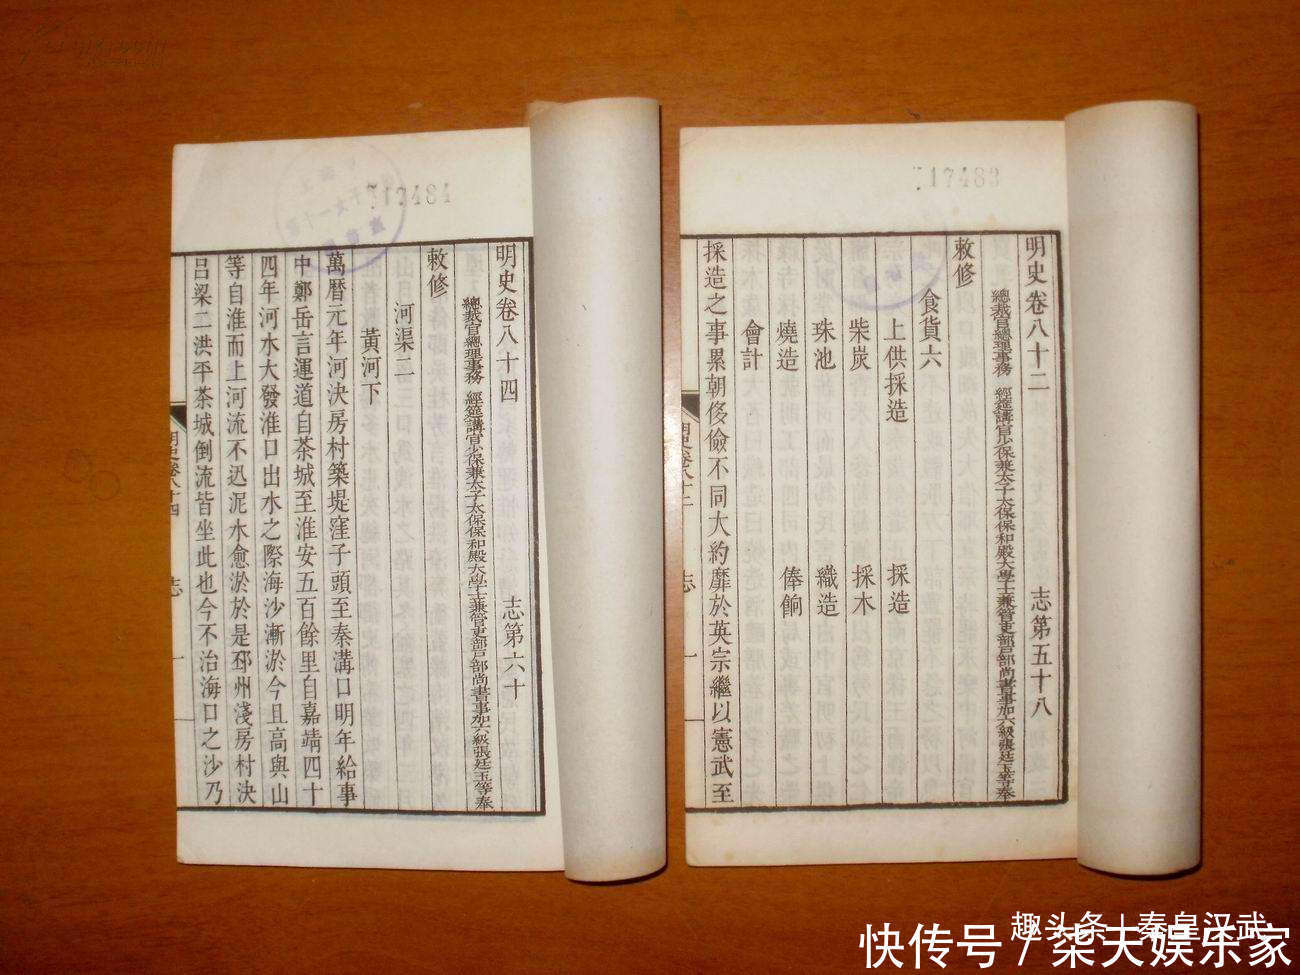 717483
明史卷八十二 志第五十八
總裁官總理事務 經筵講官少保兼太子太保保和殿大學士兼管吏部戶部尚書事加六級張廷玉等奉
敕修
食貨六
上供採造 採造
柴炭 採木
珠池 織造
燒造 俸餉
會計
採造之事累朝侈儉不同大約靡於英宗繼以憲武至
明史卷八十二 志 一
717484
明史卷八十四 志第六十
總裁官總理事務 經筵講官少保兼太子太保保和殿大學士兼管吏部戶部尚書事加六級張廷玉等奉
敕修
河渠二
黃河下
萬曆元年河決房村築堤窪子頭至秦溝口明年給事
中鄭岳言運道自茶城至淮安五百餘里自嘉靖四十
四年河水大發淮口出水之際海沙漸淤今且高與山
等自淮而上河流不迅泥水愈淤於是邳州淺房村決
呂梁二洪平茶城倒流皆坐此也今不治海口之沙乃
明史卷八十四 志 一
趣头条 | 秦皇汉武
快传号 / 柒天娱乐家